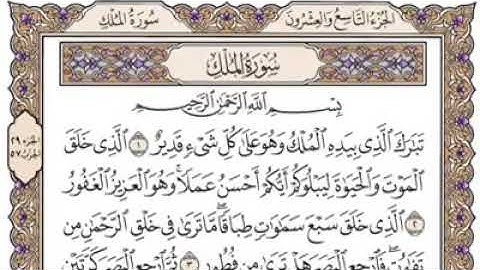 الجزء التاسع والعشرون سورة الملك
سُورَةُ المُلْكِ
بِسْمِ اللَّهِ الرَّحْمَٰنِ الرَّحِيمِ
تَبَٰرَكَ الَّذِي بِيَدِهِ الْمُلْكُ وَهُوَ عَلَىٰ كُلِّ شَيْءٍ قَدِيرٌ ١ الَّذِي خَلَقَ
الْمَوْتَ وَالْحَيَوٰةَ لِيَبْلُوَكُمْ أَيُّكُمْ أَحْسَنُ عَمَلًا ۚ وَهُوَ الْعَزِيزُ الْغَفُورُ
٢ الَّذِي خَلَقَ سَبْعَ سَمَٰوَٰتٍ طِبَاقًا ۖ مَّا تَرَىٰ فِي خَلْقِ الرَّحْمَٰنِ مِن
تَفَٰوُتٍ ۖ فَارْجِعِ الْبَصَرَ هَلْ تَرَىٰ مِن فُطُورٍ ٣ ثُمَّ ارْجِعِ الْبَصَرَ كَرَّتَيْنِ
الجزء ٢٩
الحزب ٥٧